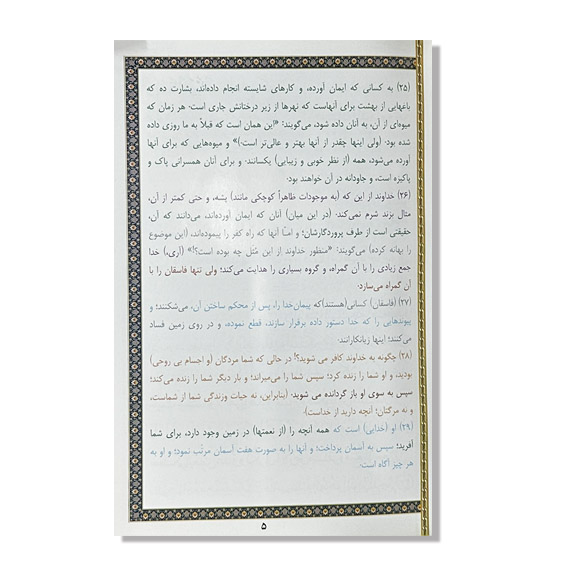 (۲۵) به کسانی که ایمان آورده، و کارهای شایسته انجام داده‌اند، بشارت ده که
باغهایی از بهشت برای آنهاست که نهرها از زیر درختانش جاری است. هر زمان که
میوه‌ای از آن، به آنان داده شود، می‌گویند: «این همان است که قبلاً به ما روزی داده
شده بود. (ولی اینها چقدر از آنها بهتر و عالی‌تر است.)» و میوه‌هایی که برای آنها
آورده می‌شود، همه (از نظر خوبی و زیبایی) یکسانند. و برای آنان همسرانی پاک و
پاکیزه است، و جاودانه در آن خواهند بود.
(۲۶) خداوند از این که (به موجودات ظاهراً کوچکی مانند) پشه، و حتی کمتر از آن،
مثال بزند شرم نمی‌کند. (در این میان) آنان که ایمان آورده‌اند، می‌دانند که آن،
حقیقتی است از طرف پروردگارشان؛ و امّا آنها که راه کفر را پیموده‌اند، (این موضوع
را بهانه کرده) می‌گویند: «منظور خداوند از این مثَل چه بوده است؟!» (آری،) خدا
جمع زیادی را با آن گمراه، و گروه بسیاری را هدایت می‌کند؛ ولی تنها فاسقان را با
آن گمراه می‌سازد.
(۲۷) (فاسقان) کسانی(هستند)که پیمان‌خدا را، پس از محکم ساختن آن، می‌شکنند؛ و
پیوندهایی را که خدا دستور داده برقرار سازند، قطع نموده، و در روی زمین فساد
می‌کنند؛ اینها زیانکارانند.
(۲۸) چگونه به خداوند کافر می شوید؟! در حالی که شما مردگان (و اجسام بی روحی)
بودید، و او شما را زنده کرد؛ سپس شما را می‌میراند؛ و بار دیگر شما را زنده می‌کند؛
سپس به سوی او باز گردانده می شوید. (بنابراین، نه حیات وزندگی شما از شماست،
و نه مرگتان؛ آنچه دارید از خداست).
(۲۹) او (خدایی) است که همه آنچه را (از نعمتها) در زمین وجود دارد، برای شما
آفرید؛ سپس به آسمان پرداخت؛ و آنها را به صورت هفت آسمان مرتّب نمود؛ و او به
هر چیز آگاه است.
۵